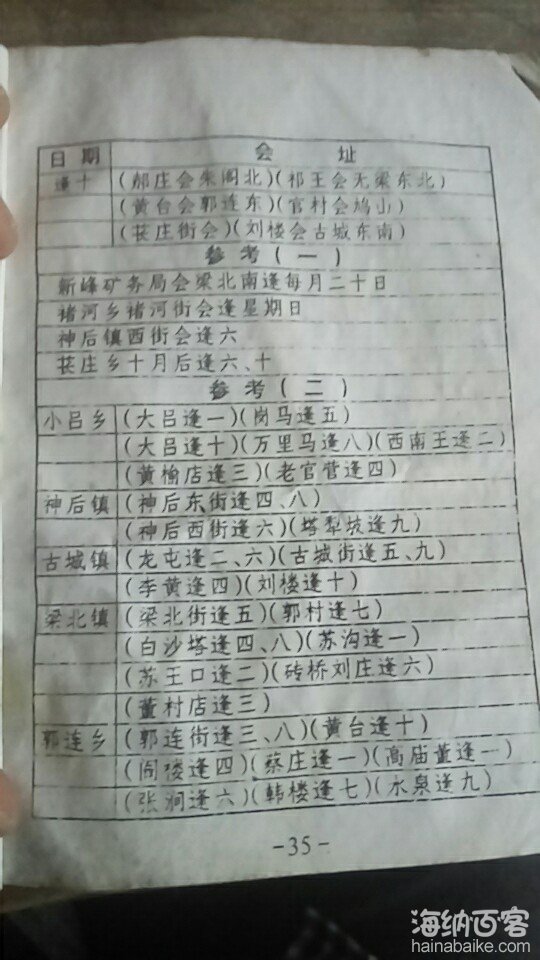 日期 会址
逢十 (郝庄会朱阁北)(祁王会无梁东北)
(黄台会郭连东)(官村会鸠山)
(苌庄街会)(刘楼会古城东南)
参考(一)
新峰矿务局会梁北南逢每月二十日
褚河乡褚河街会逢星期日
神后镇西街会逢六
苌庄乡十月后逢六、十
参考(二)
小吕乡 (大吕逢一)(岗马逢五)
(大吕逢十)(万里马逢八)(西南王逢二)
(黄榆店逢三)(老官营逢四)
神后镇 (神后东街逢四、八)
(神后西街逢六)(塔犁坡逢九)
古城镇 (龙屯逢二、六)(古城街逢五、九)
(李黄逢四)(刘楼逢十)
梁北镇 (梁北街逢五)(郭村逢七)
(白沙塔逢四、八)(苏沟逢一)
(苏王口逢二)(砖桥刘庄逢六)
(董村店逢三)
郭连乡 (郭连街逢三、八)(黄台逢十)
(阎楼逢四)(蔡庄逢一)(高庙董逢一)
(张涧逢六)(韩楼逢七)(水泉逢九)
-35-
海纳百客
hainabaike.com